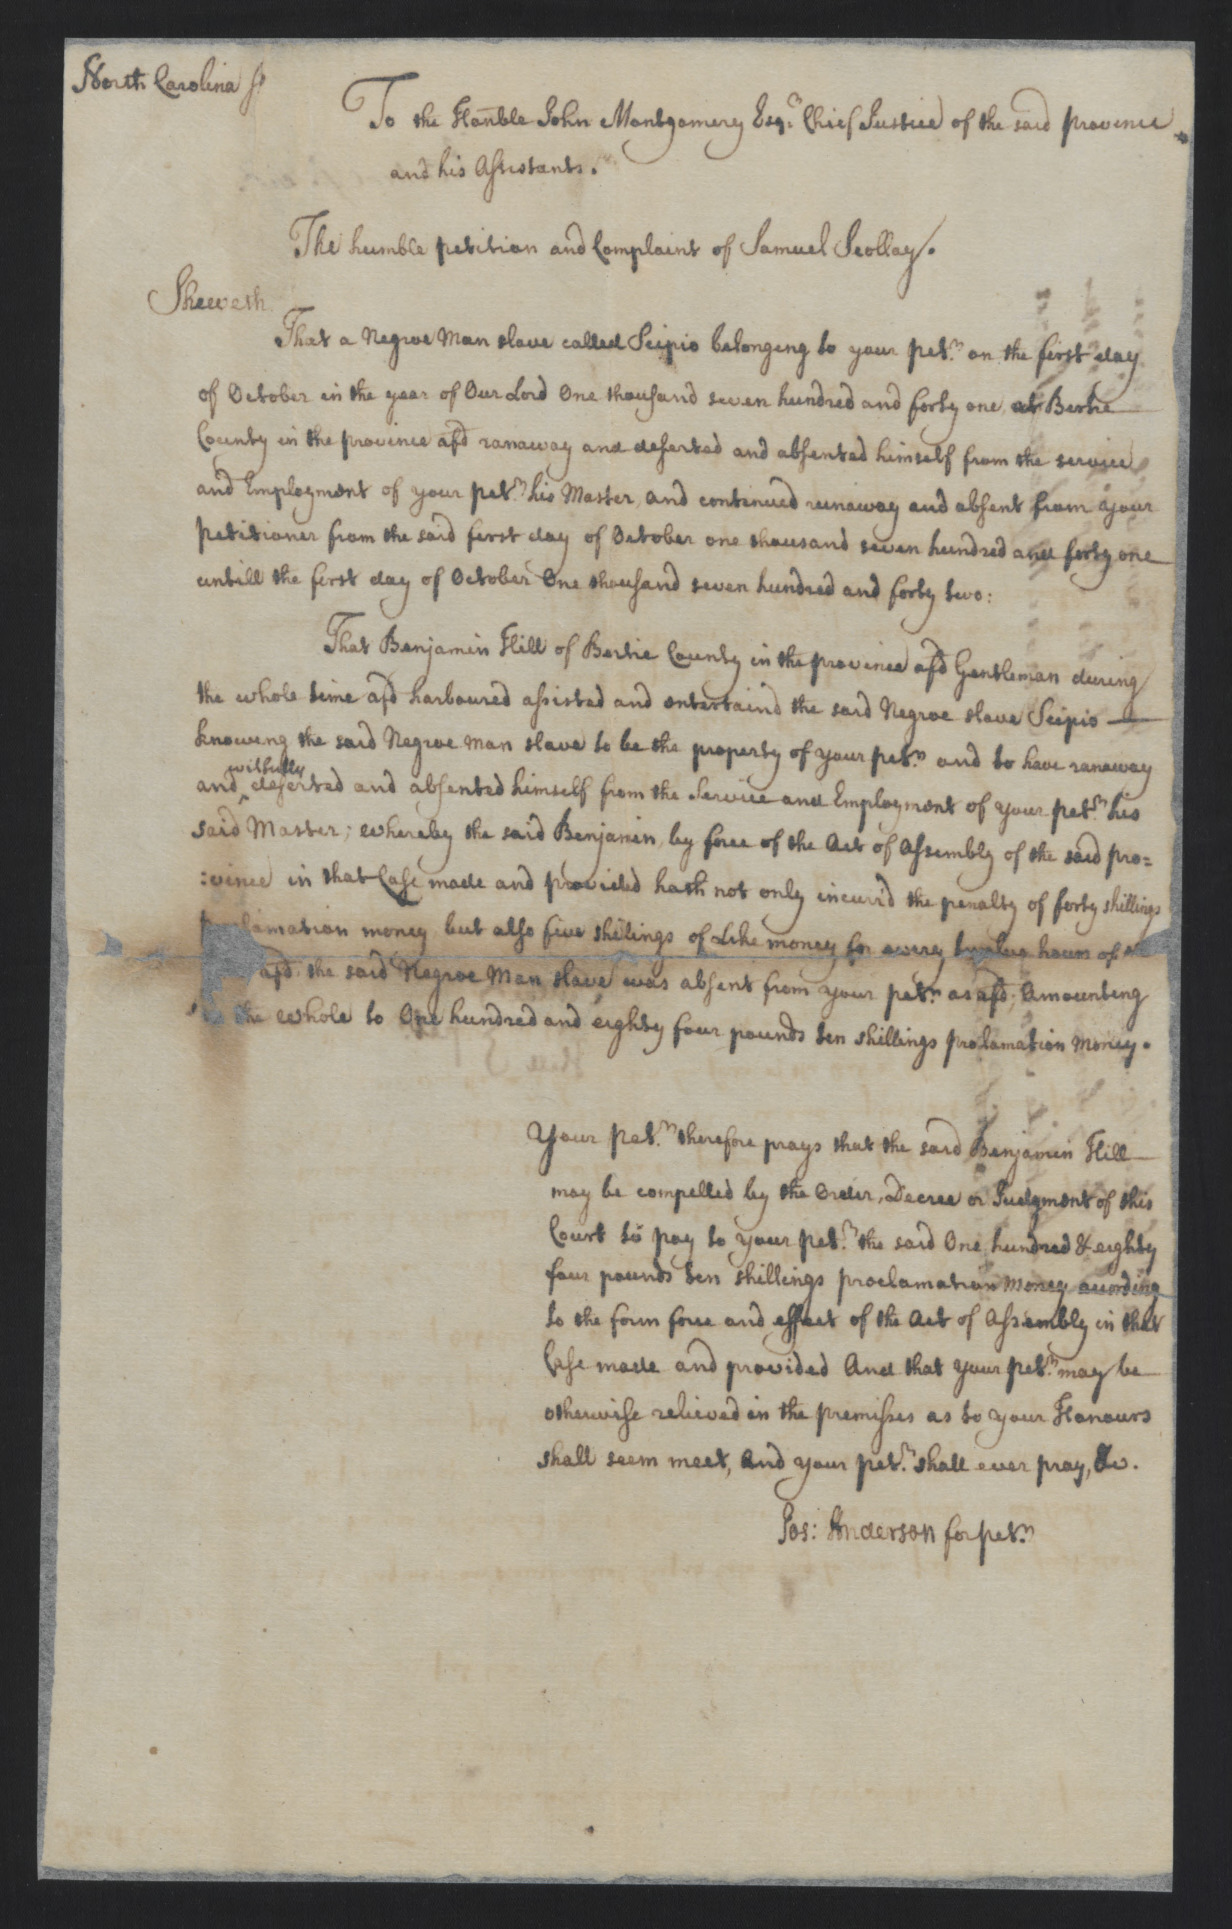 North Carolina ss
To the Honble John Montgomery Esqr. Chief Justice of the said province
and his Assistants.
The humble petition and Complaint of Samuel Scollay.
Sheweth
That a Negroe Man slave called Scipio belonging to your petr. on the first day
of October in the year of Our Lord One thousand seven hundred and forty one at Bertie
County in the province afsd ranaway and deserted and absented himself from the service
and Employment of your petr. his Master, and continued runaway and absent from your
petitioner from the said first day of October one thousand seven hundred and forty one
untill the first day of October One thousand seven hundred and forty two:
That Benjamin Hill of Bertie County in the province afsd Gentleman during
the whole time afsd harboured assisted and entertaind the said Negroe slave Scipio
knowing the said Negroe man slave to be the property of your petr. and to have ranaway
wilfully
and deserted and absented himself from the Service and Employment of your petr. his
said Master; whereby the said Benjamin, by force of the Act of Assembly of the said pro=
:vince in that Case made and provided hath not only incurr'd the penalty of forty shillings
proclamation money but also five shillings of Like money for every twelve hours of
afsd the said Negroe Man slave was absent from your petr. as afsd; Amounting
the whole to One hundred and eighty four pounds ten shillings proclamation Money.
Your petr. therefore prays that the said Benjamin Hill
may be compelled by the Order, Decree or Judgment of this
Court to pay to your petr. the said One hundred & eighty
four pounds ten shillings proclamation Money acording
to the form force and effect of the Act of Assembly in that
Case made and provided And that your petr. may be
otherwise relieved in the premisses as to your Honours
shall seem meet, And your petr. shall ever pray, &c.
Jos: Anderson for petr.